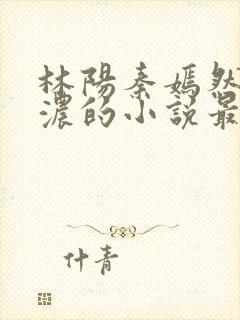 林陽秦嫣然
濃的小説最
什青